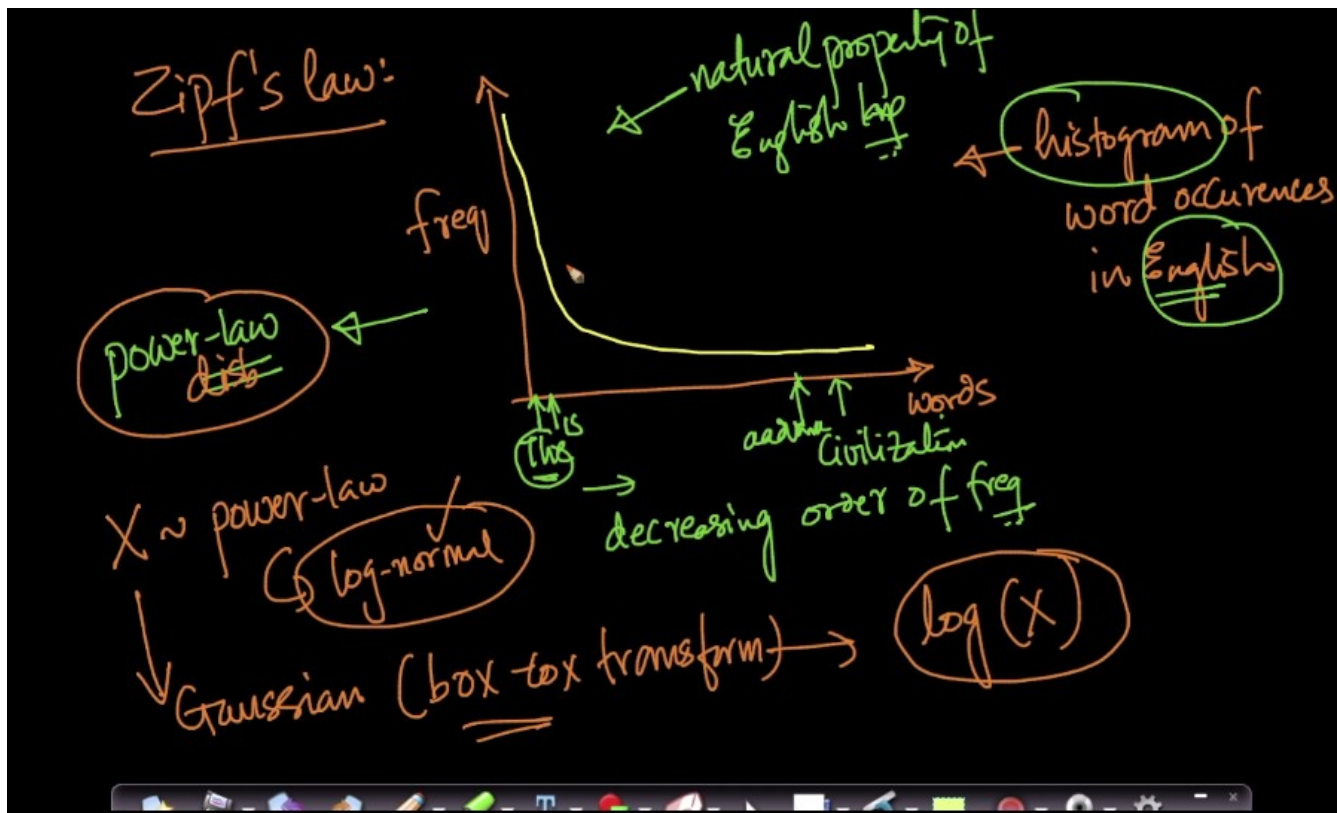 Zipf's law:
natural property of
English lang
histogram of
word occurences
in English
freq
power-law
dist
words
The is
Civilization
decreasing order of freq
X ~ power-law
log-normal
Gaussian (box-cox transform) → log (X)
T